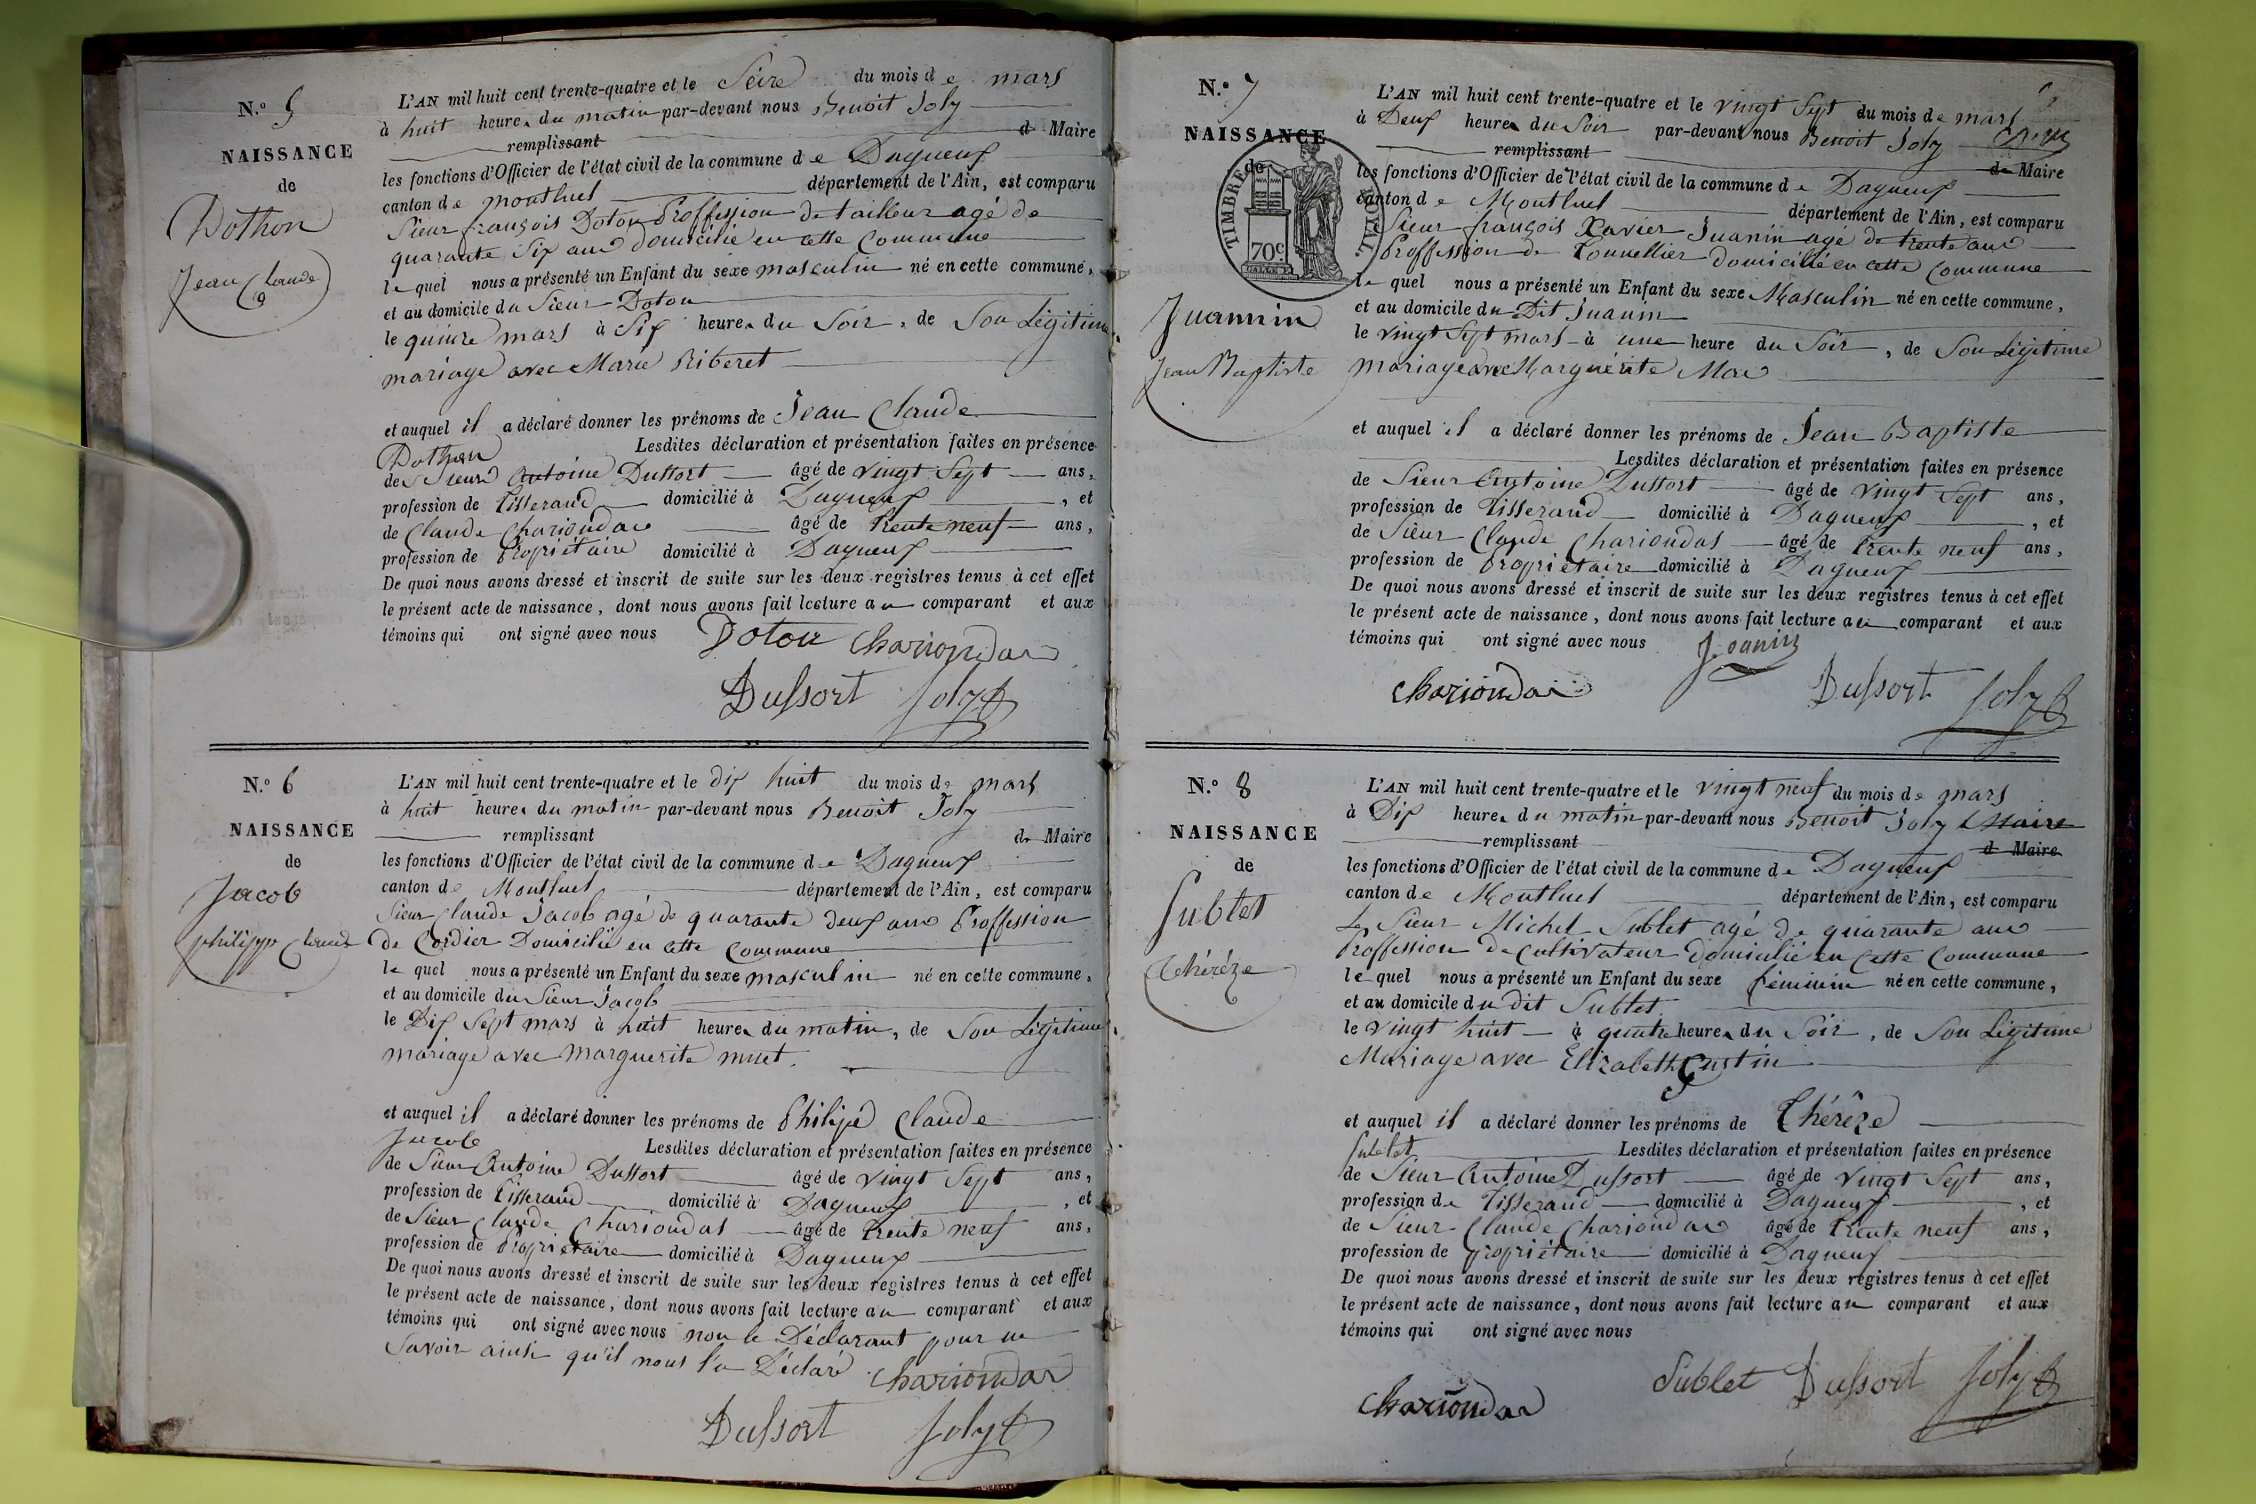 N.º 5
NAISSANCE
de
Dothon
Jean Claude
L'AN mil huit cent trente-quatre et le Seize du mois de mars
à huit heures du matin par-devant nous Benoit Joly
remplissant de Maire
les fonctions d'Officier de l'état civil de la commune de Dagneux
canton de montluel département de l'Ain, est comparu
Sieur françois Doton Proffession de tailleur agé de
quarante Six ans domicilié en cette Commune
le quel nous a présenté un Enfant du sexe masculin né en cette commune,
et au domicile du Sieur Doton
le quinze mars à Six heures du Soir, de Son Légitime
mariage avec Marie Riberet
et auquel il a déclaré donner les prénoms de Jean Claude
Dothon Lesdites déclaration et présentation faites en présence
de Sieurs Antoine Dussort âgé de vingt Sept ans,
profession de Tisserand domicilié à Dagneux, et
de Claude Charioudas âgé de trente neuf ans,
profession de Propriétaire domicilié à Dagneux
De quoi nous avons dressé et inscrit de suite sur les deux registres tenus à cet effet
le présent acte de naissance, dont nous avons fait lecture au comparant et aux
témoins qui ont signé avec nous Doton Charioudas
Dussort Joly
N.º 6
NAISSANCE
de
Jacob
philippe Claude
L'AN mil huit cent trente-quatre et le dix huit du mois de mars
à huit heures du matin par-devant nous Benoit Joly
remplissant de Maire
les fonctions d'Officier de l'état civil de la commune de Dagneux
canton de Montluel département de l'Ain, est comparu
Sieur Claude Jacob agé de quarante deux ans Proffession
de Cordier Domicilié en cette Commune
le quel nous a présenté un Enfant du sexe masculin né en cette commune,
et au domicile du Sieur Jacob
le Dix Sept mars à huit heures du matin, de Son Légitime
mariage avec marguerite muet.
et auquel il a déclaré donner les prénoms de Philipe Claude
Jacob Lesdites déclaration et présentation faites en présence
de Sieur Antoine Dussort âgé de vingt Sept ans,
profession de Tisserand domicilié à Dagneux, et
de Sieur Claude Charioudas âgé de trente neuf ans,
profession de Propriétaire domicilié à Dagneux
De quoi nous avons dressé et inscrit de suite sur les deux registres tenus à cet effet
le présent acte de naissance, dont nous avons fait lecture au comparant et aux
témoins qui ont signé avec nous non le Déclarant pour ne
Savoir ainsi qu'il nous l'a Déclaré Charioudas
Dussort Joly
N.º 7
NAISSANCE
de
TIMBRE ROYAL.
70c
Juannin
Jean Baptiste
L'AN mil huit cent trente-quatre et le vingt Sept du mois de mars
à Deux heures du Soir par-devant nous Benoit Joly
remplissant de Maire
les fonctions d'Officier de l'état civil de la commune de Dagneux
canton de Montluel département de l'Ain, est comparu
Sieur françois Xavier Juanin agé de trente ans
Proffession de Tonnellier domicilié en cette Commune
le quel nous a présenté un Enfant du sexe Masculin né en cette commune,
et au domicile du Dit Juanin
le vingt Sept mars à une heure du Soir, de Son Légitime
mariage avec Marguérite
et auquel il a déclaré donner les prénoms de Jean Baptiste
Lesdites déclaration et présentation faites en présence
de Sieur Antoine Dussort âgé de vingt Sept ans,
profession de Tisserand domicilié à Dagneux, et
de Sieur Claude Charioudas âgé de trente neuf ans,
profession de Propriétaire domicilié à Dagneux
De quoi nous avons dressé et inscrit de suite sur les deux registres tenus à cet effet
le présent acte de naissance, dont nous avons fait lecture au comparant et aux
témoins qui ont signé avec nous Joanin
Charioudas Dussort Joly
N.º 8
NAISSANCE
de
Sublet
Thérèze
L'AN mil huit cent trente-quatre et le vingt neuf du mois de mars
à Dix heures du matin par-devant nous Benoit Joly Maire
remplissant de Maire
les fonctions d'Officier de l'état civil de la commune de Dagneux
canton de Montluel département de l'Ain, est comparu
Le Sieur Michel Sublet agé de quarante ans
Proffession de Cultivateur domicilié en cette Commune
le quel nous a présenté un Enfant du sexe féminin né en cette commune,
et au domicile du dit Sublet
le vingt huit à quatre heures du Soir, de Son Légitime
Mariage avec Elizabeth Custin
et auquel il a déclaré donner les prénoms de Thérêze
Sublet Lesdites déclaration et présentation faites en présence
de Sieur Antoine Dussort âgé de vingt Sept ans,
profession de Tisserand domicilié à Dagneux, et
de Sieur Claude Charioudas âgé de trente neuf ans,
profession de propriétaire domicilié à Dagneux
De quoi nous avons dressé et inscrit de suite sur les deux registres tenus à cet effet
le présent acte de naissance, dont nous avons fait lecture au comparant et aux
témoins qui ont signé avec nous
Sublet Dussort Joly
Charioudas